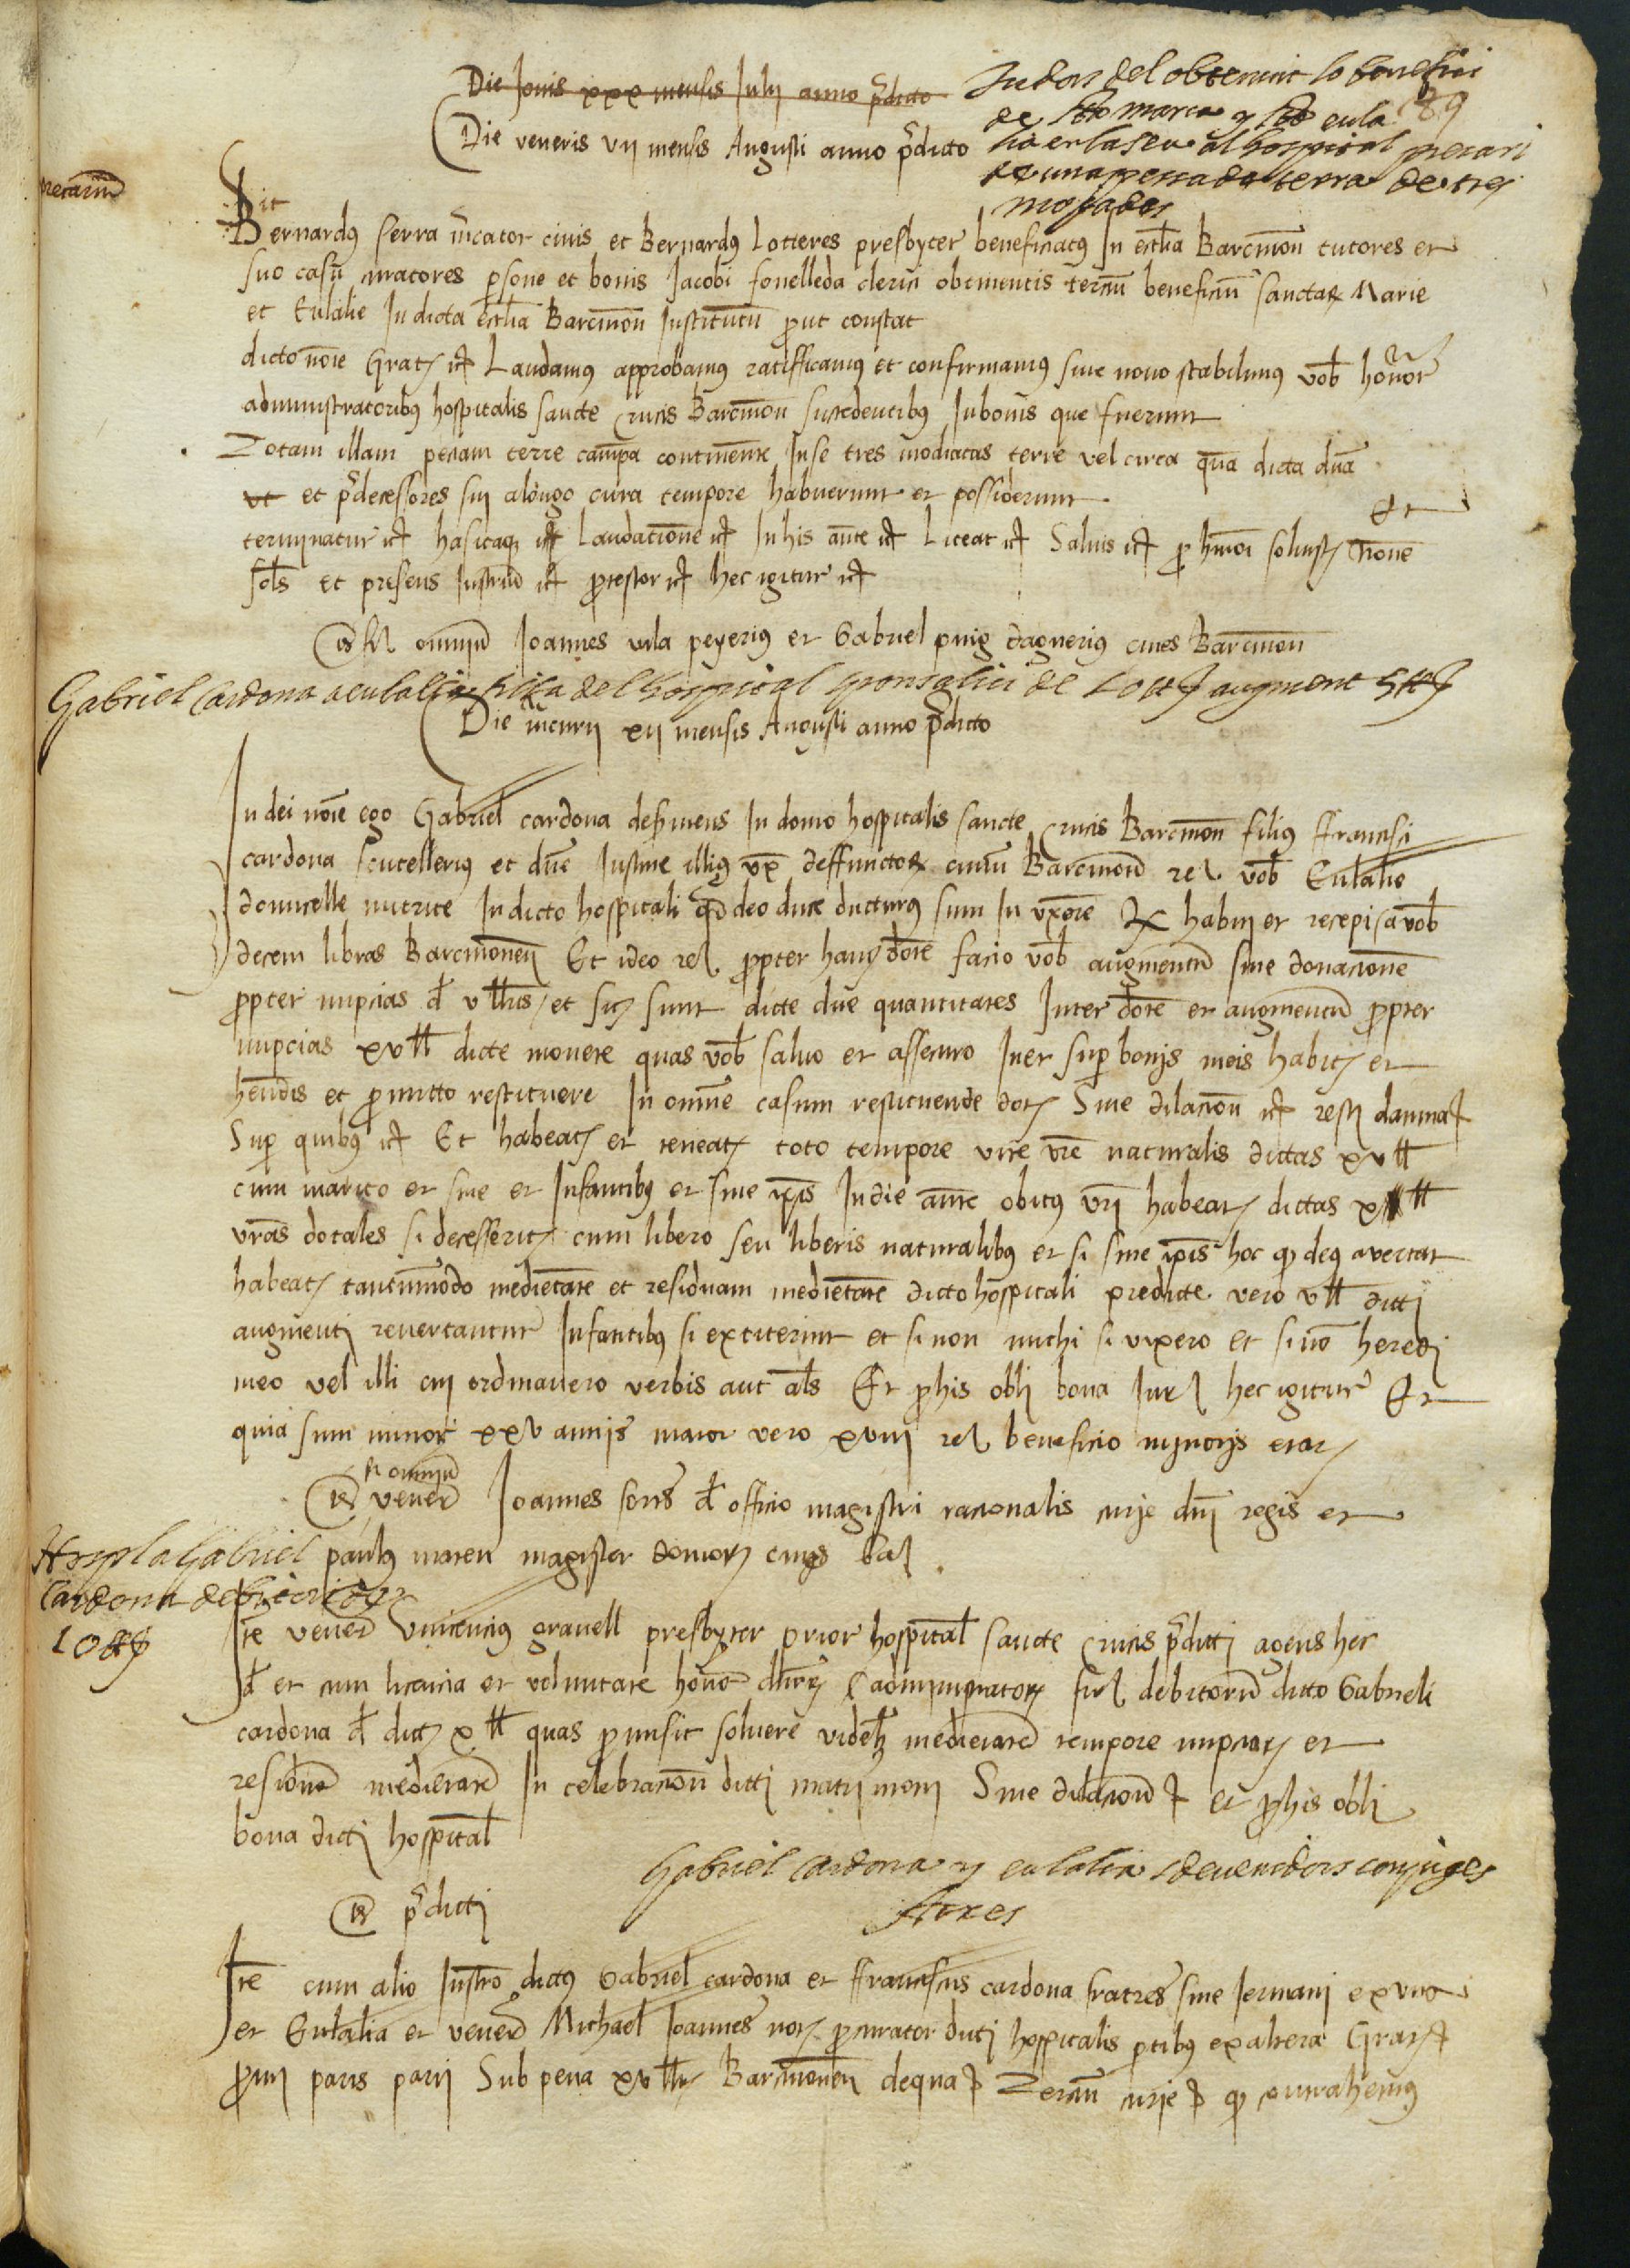 Die Jovis xxx mensis Julij anno p̄dicto
Die veneris vij mensis Augusti anno p̄dicto
Tudors del obtenint lo benefici
de sta maria y sta eula
lia en la seu al hospital precari
de una pessa de terra de tres
mojades
89
precariũ
Dit
Bernardus serra m̄cator civis et Bernardus Lotteres presbyter beneficiatus In ecclīa Barcinoñ tutores et
suo casu curatores p̱sone et bonis Jacobi fonelleda clerici obtinentis terciũ beneficiũ sanctaꝝ Marie
et Eulalie In dicta ecclīa Barcinoñ Institutũ prout constat
dicto noīe Gratis etc Laudamus approbamus ratifficamus et confirmamus sive novo stabilimus vob honor
administratoribus hospitalis sancte crucis Barcinoñ succedentibus In bonis que fuerunt
Totam illam peciam terre campa continente In se tres modiatas terre vel circa quã dicta dña
ut et p̄decessores sui a longo citra tempore habuerunt et possiderunt
Et
terminatur etc hasitaqꝫ etc Laudacione etc In his ante etc Liceat etc Salvis etc ꝓ hm̄oi solvistis none
sols et presens Instrũ etc protestor etc hec igitur etc
ts fi omniũ Joannes vila peyerius et Gabriel puig daguerius cives Barcinoñ
Gabriel Cardona a eulalia filla del hospital sponsalici de 10 ll augment 5 ll
Die m̄curij xij mensis Augusti anno p̄dicto
In dei noīe ego Gabriel cardona deserviens In domo hospitalis sancte crucis Barcinoñ filius ffrancisci
cardona scutellerius et dñe Justine illius ux̄ deffunctoꝝ civiũ Barcinoñ rel vob Eulalie
domicelle nutrite In dicto hospitali quā deo duce ducturus sum In uxorē Qꝫ habui et recepi a vob
decem libras Barcinoneñ Et ideo rel propter hanc dotē facio vob augmentũ sive donacionē
propter nupcias d̄ v llīus et sic sunt dicte due quantitates Inter dotē et augmentũ propter
nupcias xv ll dicte monete quas vob salvo et assecuro In et sup bonis meis habitis et
hendis et promitto restituere In omnē casum restituende dotis Sine dilacioñ etc resti damna etc
Sup quibus etc Et habeatis et teneatis toto tempore vite vr̄e naturalis dictas xv ll
cum marito et sine et Infantibus et sine ip̄is In die autē obitus vr̄i habeatis dictas x ll
vr̄as dotales si decesseritis cum libero seu liberis naturalibus et si sine ip̄is hoc qꝫ deus avertat
habeatis tantummodo medietatē et residuam medietatē dicto hospitali predicte vero v ll dicti
augmenti revertantur Infantibus si extiterint et si non michi si vixero et si nõ heredi
meo vel illi cui ordinavero verbis aut als Et ꝓ his obli bona Jur hec igitur Et
quia sum minor xxv annis maior vero xviij rel beneficio minoris etatis
fi omniũ
ts veneꝝ Joannes sors d̄ officio magistri racionalis curie dñi regis et
paulus mateu magister domoꝝ cives bar
Hospital a Gabriel
Cardona debitori de
10 ll
Itē veneꝝ Vincencius gravell presbyter prior hospital sancte crucis p̄dicti agens hec
d̄ et cum licencia et voluntate honoꝝ dñoꝝ administratoꝝ fir debitoriũ dicto Gabrieli
cardona d̄ dictis x ll quas promisit solvere videlꝫ medietatē tempore nupciaꝝ et
residuā medietatē In celebracioñ dicti matrimonij Sine dilacioñ etc et ꝓ his obli
bona dicti hospital
Gabriel Cardona y eulalia esdevenidors conjuges
fermes
ts p̄dicti
Itē cum alio Instro dictus Gabriel cardona et ffranciscus cardona fratres sive Jermani ex una
et Eulalia et veneꝝ Michael Joannes notꝫ procurator dicti hospitalis p̱tibus ex altera Gratis etc
promi pars parti Sub pena xv lliꝫ Barcinoneñ de qua etc Terciũ curie etc qꝫ contrahemus